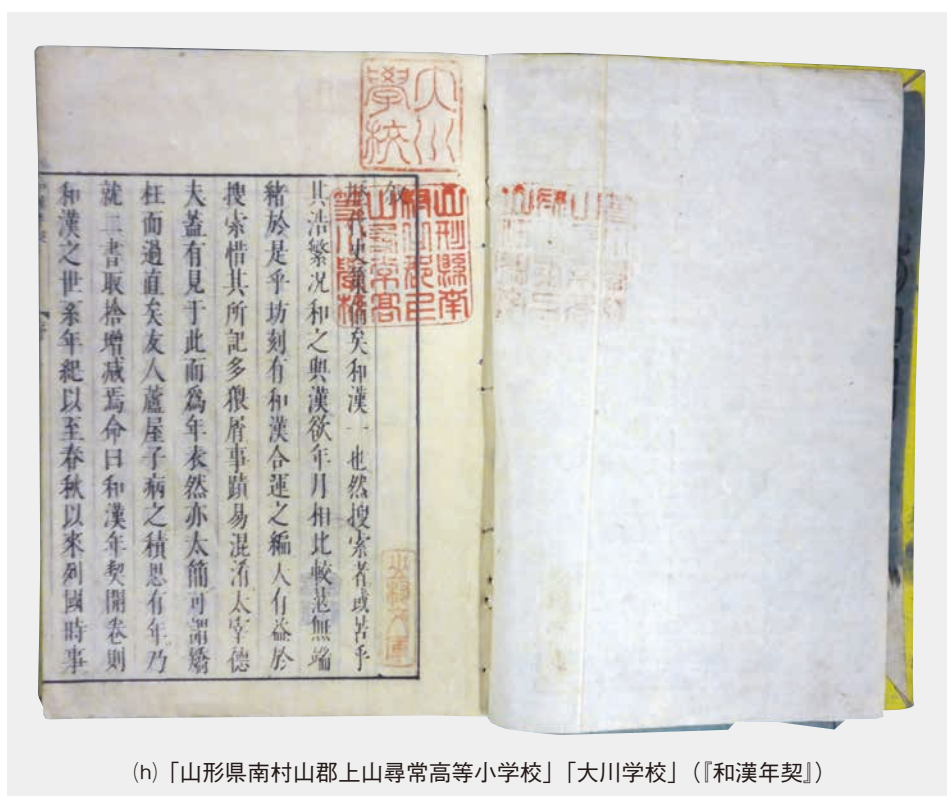 大川
學校
山形縣南
村山郡上
山尋常高
等小學校
叙
歷代史 矣和漢一也然搜索者或苦乎
其浩繁况和之與漢欲年月相比較茫無端
緒於是乎坊刻有和漢合運之編人有益於
搜索惜其所記多猥屑事蹟易混淆太宰德
夫蓋有見于此而爲年表然亦太簡可謂矯
枉而過直矣友人蘆屋子病之積思有年乃
就二書取捨增減焉命曰和漢年契開卷則
和漢之世系年紀以至春秋以來列國時事
(h)「山形県南村山郡上山尋常高等小学校」「大川学校」(『和漢年契』)